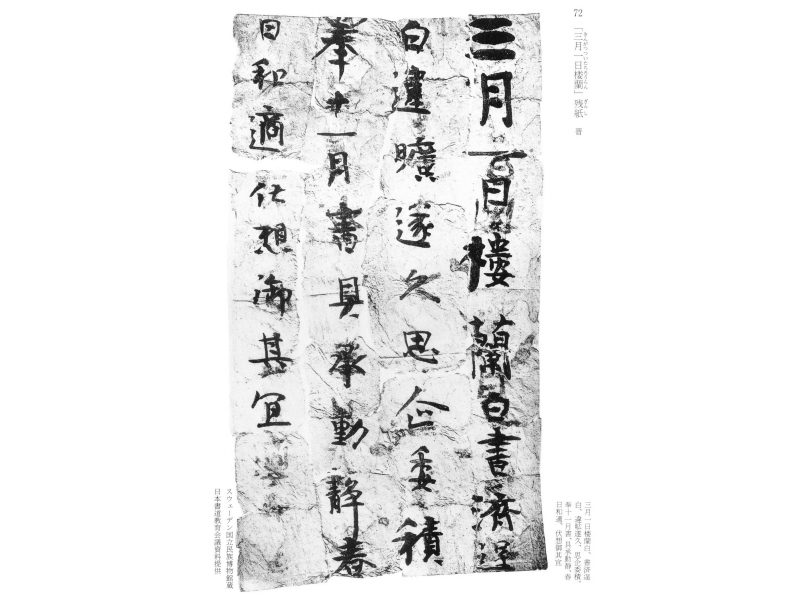 72
「三月一日楼蘭」残紙 晋
三月一日樓蘭白書濟逞
白違曠遂久思企委積
奉十一月書具承動靜春
日和適伏想御其宜
三月一日楼蘭白、書済逞
白、違曠遂久、思企委積、
奉十一月書、具承動静、春
日和適、伏想御其宜
スウェーデン国立民族博物館蔵
日本書道教育会議資料提供